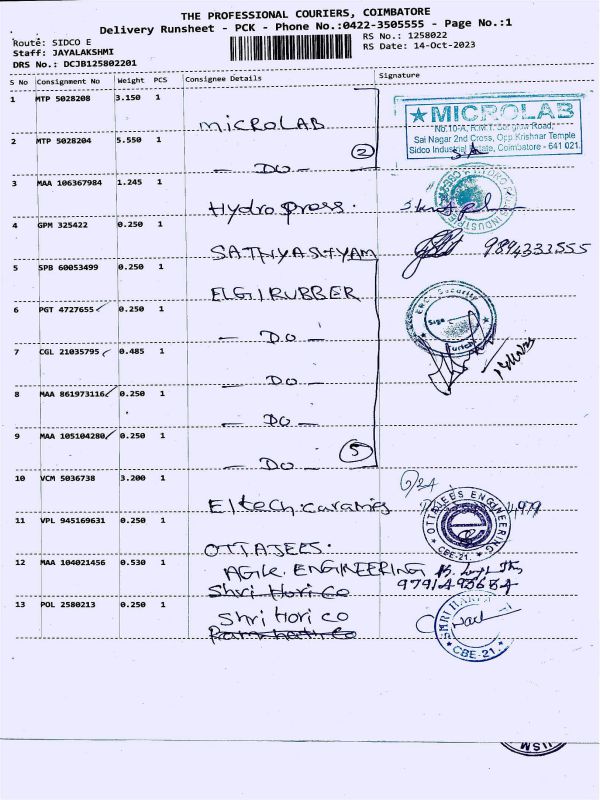 THE PROFESSIONAL COURIERS, COIMBATORE
Delivery Runsheet - PCK - Phone No.:0422-3505555 - Page No.:1
Route: SIDCO E
RS No.: 1258022
Staff: JAYALAKSHMI
RS Date: 14-Oct-2023
DRS No.: DCJB125802201
S No Consignment No Weight PCS Consignee Details Signature
1 MTP 5028208 3.150 1 MICROLAB
★MICROLAB
No.10-A, Road,
Sai Nagar 2nd Cross, Opp.Krishnar Temple
Sidco Industrial Estate, Coimbatore - 641 021.
2 MTP 5028204 5.550 1 — DO — 2
3 MAA 106367984 1.245 1 Hydro press.
4 GPM 325422 0.250 1 SATHYASHYAM 9894333555
5 SPB 60053499 0.250 1 ELGI RUBBER
Security
Sign
6 PGT 4727655 ✓ 0.250 1 — DO —
7 CGL 21035795 ✓ 0.485 1 — DO —
8 MAA 861973116 ✓ 0.250 1 — DO —
9 MAA 105104280 ✓ 0.250 1 — DO — 5
10 VCM 5036738 3.200 1 Eltech caramies
11 VPL 945169631 0.250 1 OTTAJEES.
OTTAJEES ENGINEERING
★ CBE-21. ★
12 MAA 104021456 0.530 1 AGILE ENGINEERING
Shri Hori Co
13 POL 2580213 0.250 1 Shri Hori Co
SHRI HARI
★ CBE-21.